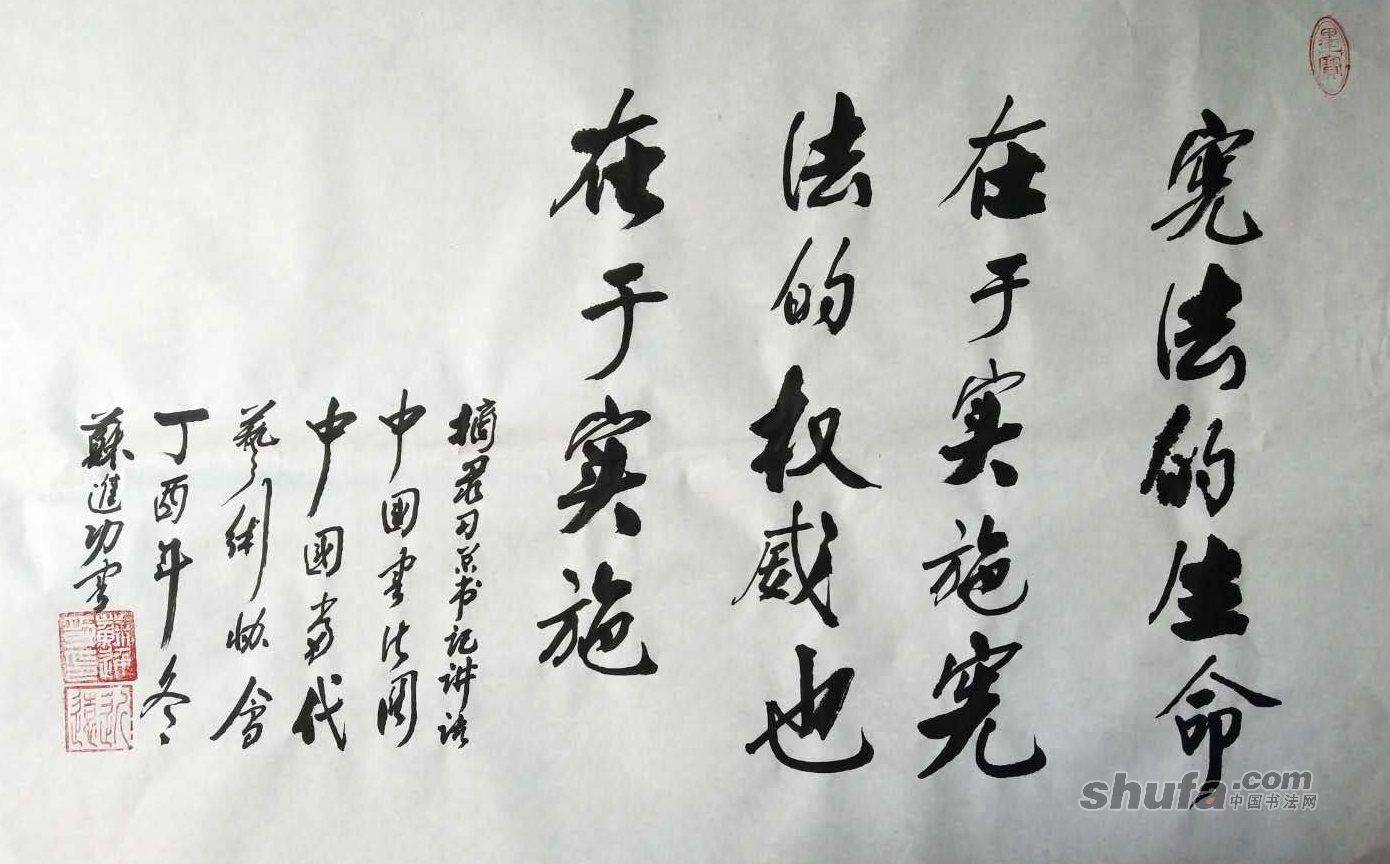 宪法的生命
在于实施宪
法的权威也
在于实施
摘录习总书记讲话
中国书法网
中國当代
藝術协會
丁酉年冬
蘇進功書
shufa.com
中国书法网